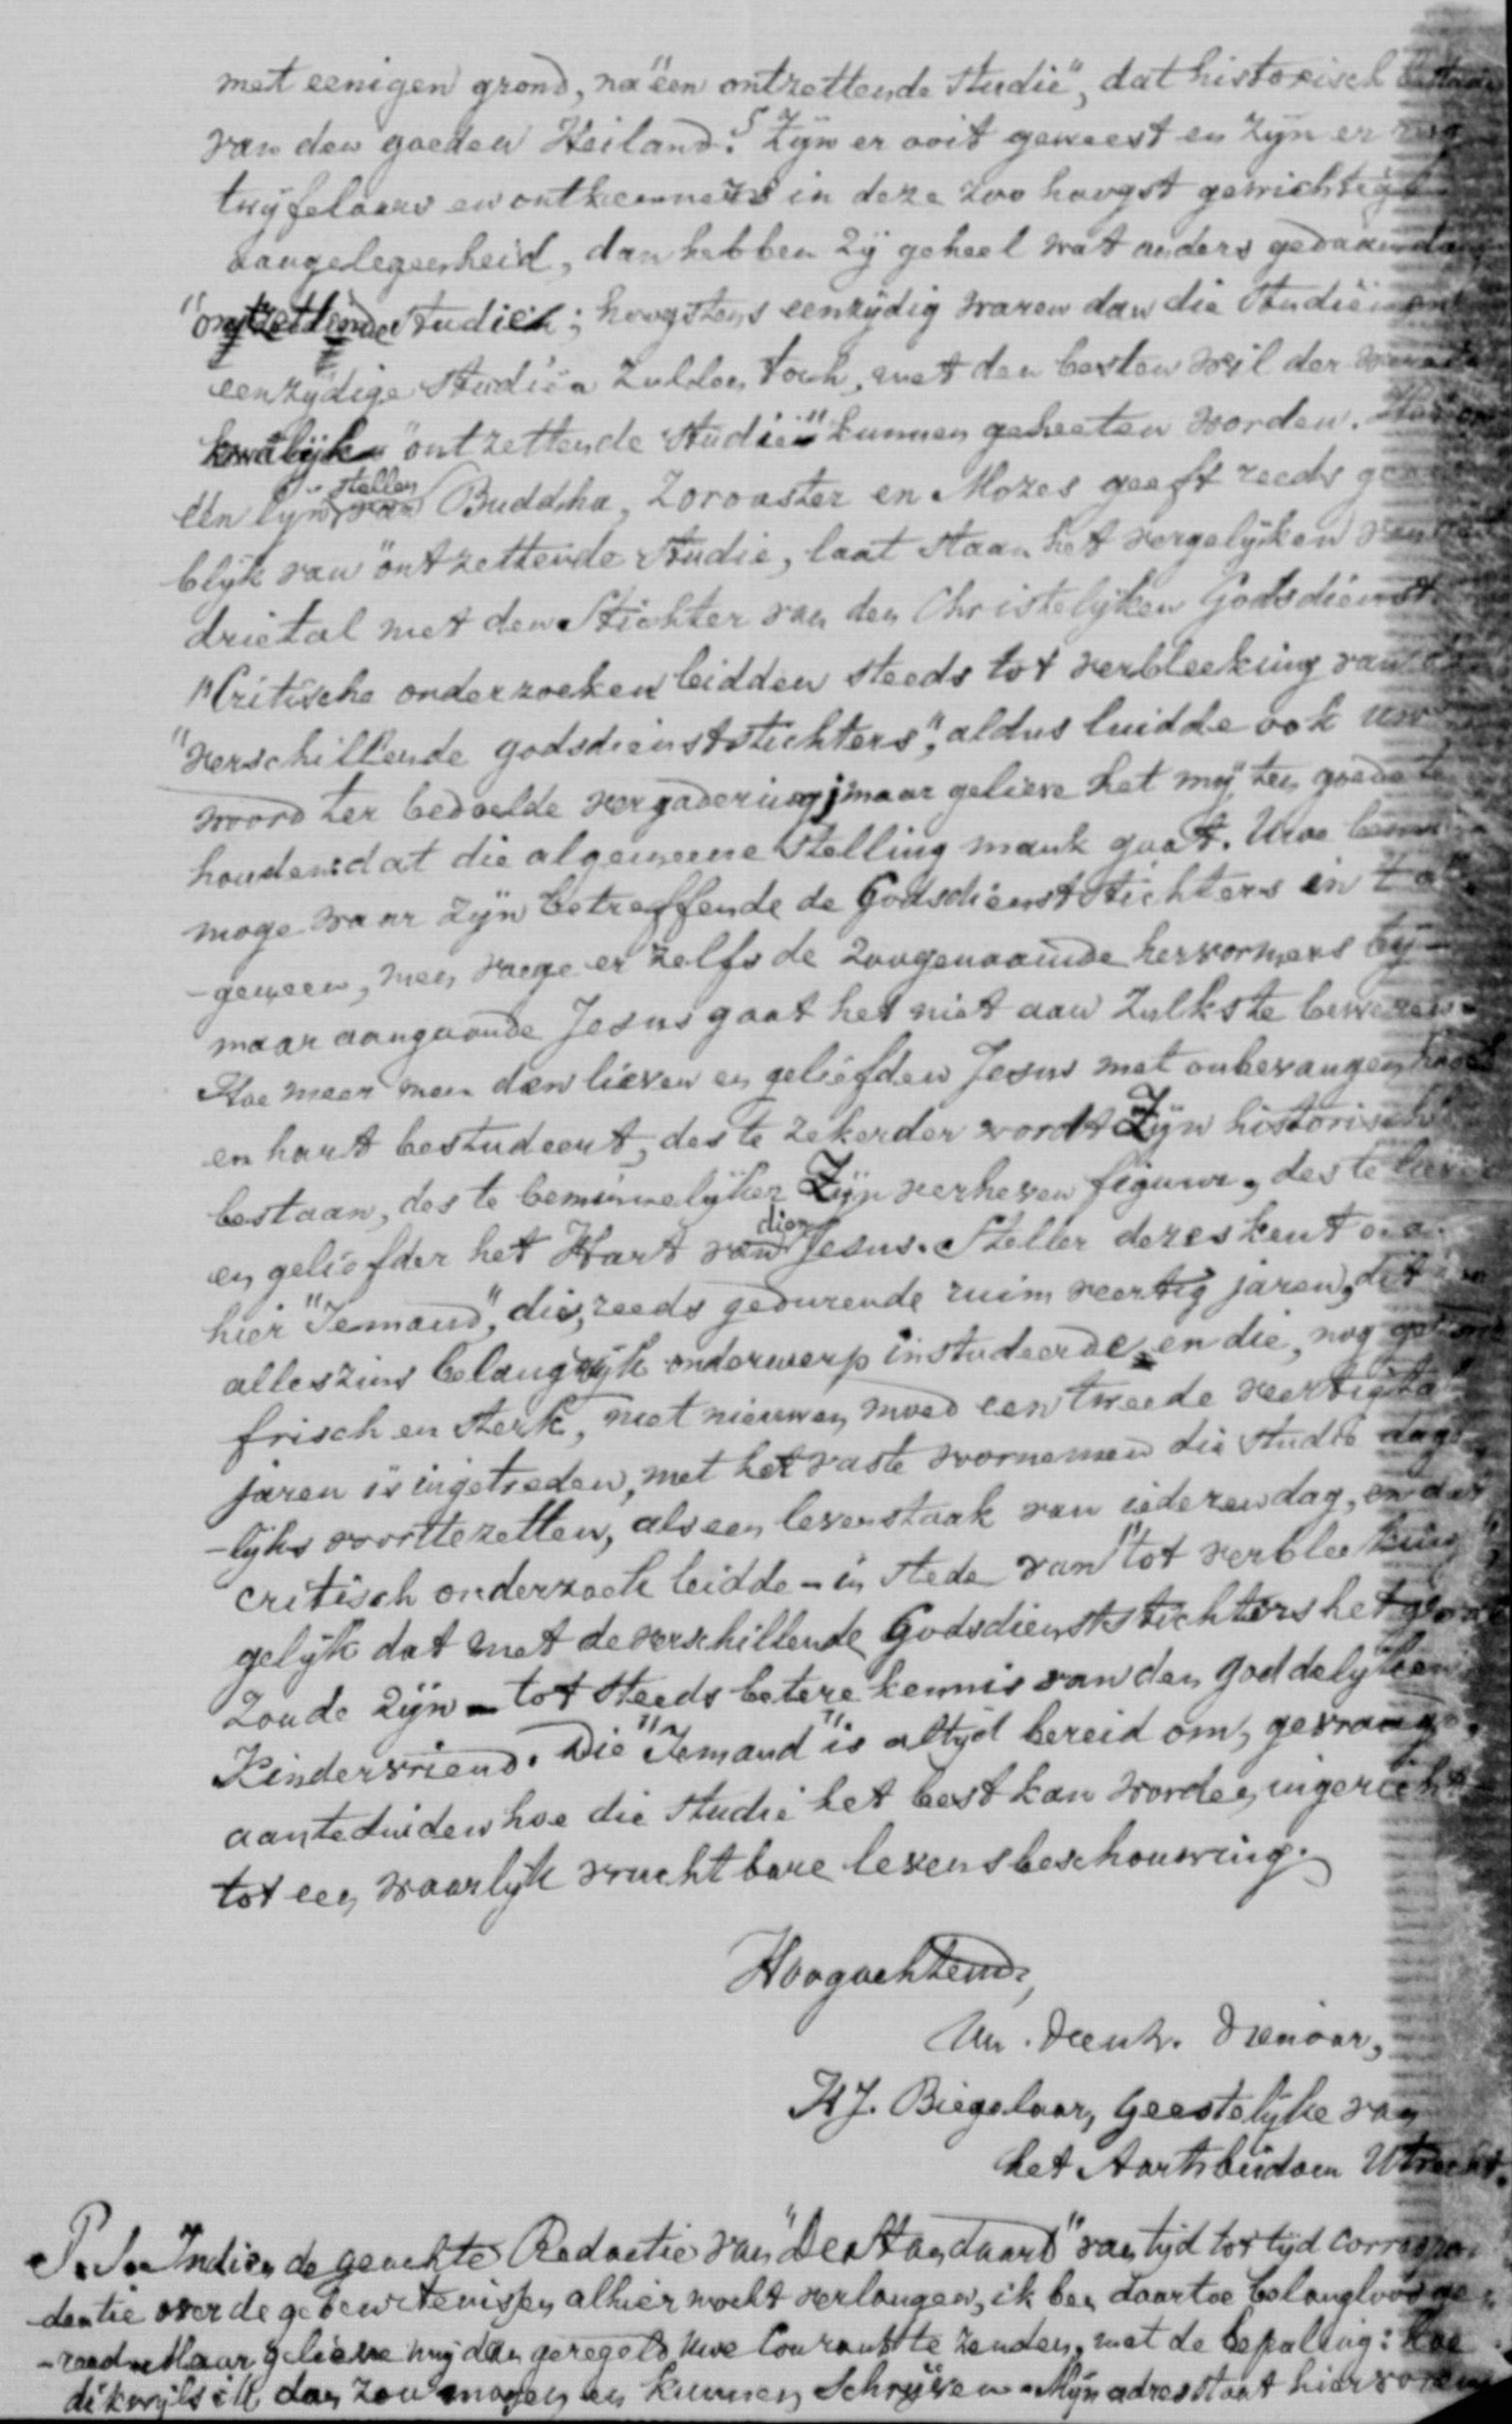 met eenigen grond, na "een ontzettende studie", dat historisch bestaan
van den goeden Heiland? Zijn er ooit geweest en zijn er nog
twijfelaars en ontkenners in deze zoo hoogst gewichtige
aangelegenheid, dan hebben zij geheel wat anders gedaan dan
"ontzettende studiën; hoogstens eenzijdig waren dan die studiën en
eenzijdige studiën zullen toch, met den besten wil der wereld
kwalijk "ontzettende studiën" kunnen geheeten worden. Het op
één lijn stellen van Buddha, Zoroaster en Mozes geeft reeds geen
blijk van "ontzettende studie, laat staan het vergelijken van
drietal met den Stichter van den Christelijken Godsdienst.
"Critische onderzoeken leidden steeds tot verbleeking van de
"verschillende godsdienststichters", aldus luidde ook uw
woord ter bedoelde vergadering; maar gelieve het mij ten goede te
houden dat die algemeene stelling mank gaat. Uwe
moge waar zijn betreffende de Godsdienststichters in 't al-
-gemeen, men voege er zelfs de zoogenaamde hervormers bij -
maar aangaande Jesus gaat het niet aan zulks te beweren.
Hoe meer men den lieven en geliefden Jesus met onbevangen hoofd
en hart bestudeert, des te zekerder wordt Zijn historisch
bestaan, des te beminnelijker Zijn verheven figuur, des te liever
en geliefder het Hart van dien Jesus. Steller dezes kent o.a.
hier "Iemand", die, reeds gedurende ruim veertig jaren, dit
alleszins belangrijk onderwerp instudeerde en die, nog
frisch en sterk, met nieuwen moed een tweede veertigtal
jaren is ingetreden, met het vaste voornemen die studie dage-
-lijks voorttezetten, als een levenstaak van iederen dag, en dat
critisch onderzoek leidde - in stede van "tot verbleeking"
gelijk dat met de verschillende Godsdienststichters het geval
zoude zijn - tot steeds betere kennis van den goddelijken
Kindervriend. Die "Iemand" is altijd bereid om, gevraagd,
aanteduiden hoe die studie het best kan worden ingericht
tot een waarlijk vruchtbare levensbeschouwing.
Hoogachtend,
Uw. Dienstw. Dienaar,
H.J. Biegelaar, Geestelijke van
het Aartsbisdom Utrecht.
P.S. Indien de geachte Redactie van "De Standaard" van tijd tot tijd correspon-
dentie over de gebeurtenissen alhier mocht verlangen, ik ben daartoe belangloos ge-
-reed. Maar gelieve mij dan geregeld uwe Courant te zenden, met de bepaling: hoe
dikwijls ik dan zou mogen en kunnen schrijven. Mijn adres staat hier